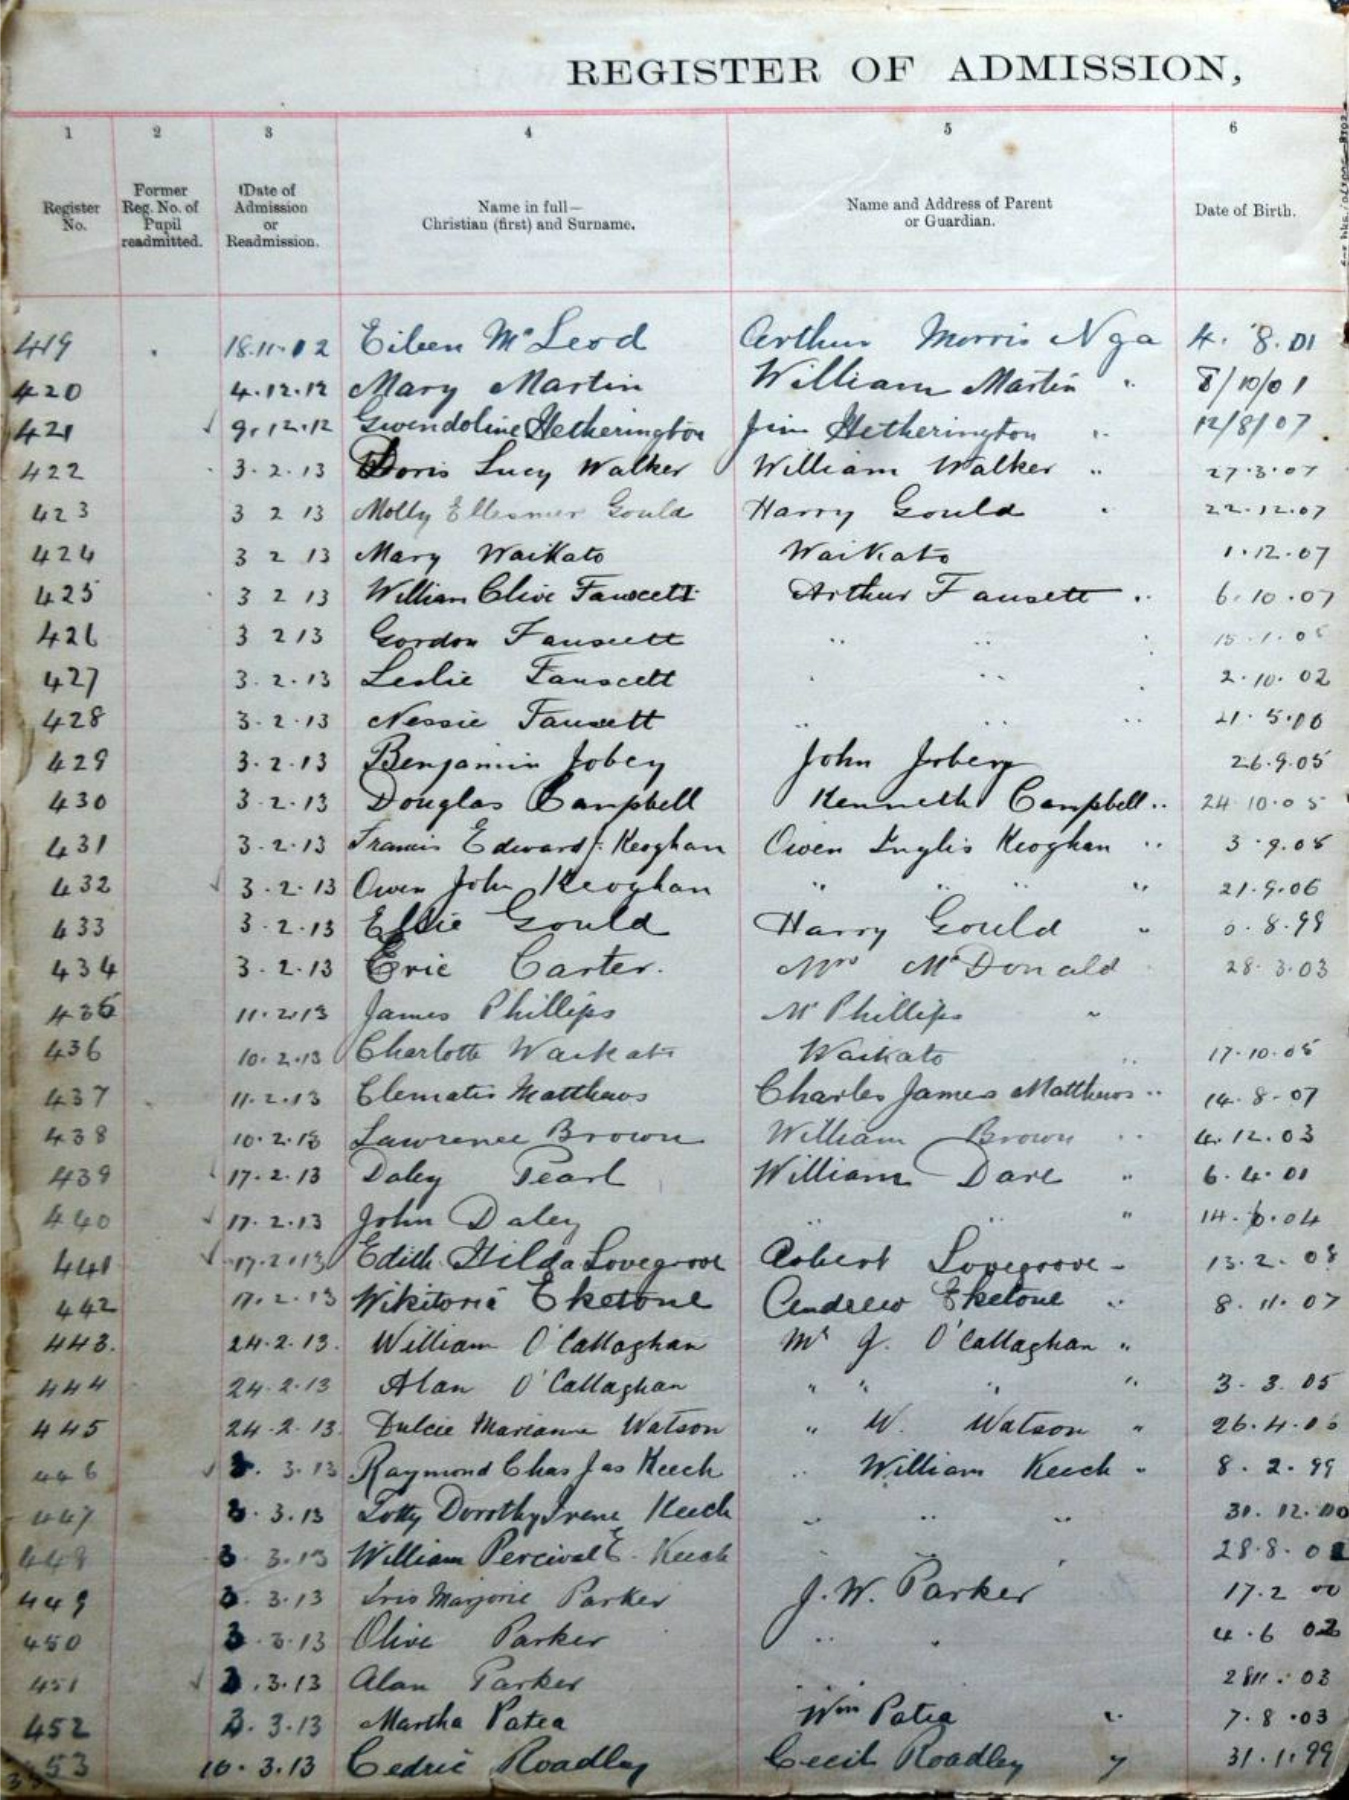 REGISTER OF ADMISSION,
1 2 3 4 5 6
Register No. Former Reg. No. of Pupil readmitted. Date of Admission or Readmission. Name in full— Christian (first) and Surname. Name and Address of Parent or Guardian. Date of Birth.
419 18.11.12 Eileen McLeod Arthur Morris Nga 4. 8. 01
420 4.12.12 Mary Martin William Martin " 8/10/01
421 9.12.12 Gwendoline Hetherington Jim Hetherington " 12/8/07
422 3.2.13 Doris Lucy Walker William Walker " 27.3.07
423 3 2 13 Molly Ellesmer Gould Harry Gould " 22.12.07
424 3 2 13 Mary Waikato Waikato 1.12.07
425 3 2 13 William Clive Fawcett Arthur Fausett " 6.10.07
426 3 2 13 Gordon Fauscett " " " 15.1.05
427 3.2.13 Leslie Fauscett " " " 2.10.02
428 3.2.13 Nessie Fausett " " " 21.5.00
429 3.2.13 Benjamin Jobey John Jobey 26.9.05
430 3.2.13 Douglas Campbell Kenneth Campbell " 24 10.05
431 3.2.13 Francis Edward J. Keoghan Owen Inglis Keoghan " 3.9.08
432 3.2.13 Owen John Keoghan " " " " 21.9.06
433 3.2.13 Effie Gould Harry Gould " 8.99
434 3.2.13 Eric Carter. Mrs McDonald 28.3.03
435 11.2.13 James Phillips Mr Phillips "
436 10.2.13 Charlotte Waikato Waikato " 17.10.05
437 11.2.13 Clematis Matthews Charles James Matthews " 14.8.07
438 10.2.13 Lawrence Brown William Brown " 4.12.03
439 17.2.13 Daley Pearl William Dare " 6.4.01
440 17.2.13 John Daley " " " 14.6.04
441 17.2.13 Edith Hilda Lovegrove Robert Lovegrove " 13.2.08
442 17.2.13 Wikitoria Eketone Andrew Eketone " 8.11.07
443. 24.2.13. William O'Callaghan Mr J. O'Callaghan "
444 24.2.13 Alan O'Callaghan " " " " 3.3.05
445 24.2.13. Dulcie Marianne Watson " W. Watson " 26.4.06
446 3.3.13 Raymond Chas Jas Keech " William Keech " 8.2.99
447 3.3.13 Totty Dorothy Irene Keech " " " 31.12.00
448 3.3.13 William Percival E. Keech " " " 28.8.02
449 3.3.13 Iris Marjorie Parker J. W. Parker 17.2 00
450 3.3.13 Olive Parker " " 4.6 02
451 3.3.13 Alan Parker " " 28 11.03
452 3.3.13 Martha Patea Wm Patea " 7.8.03
453 10.3.13 Cedric Roadley Cecil Roadley " 31.1.99